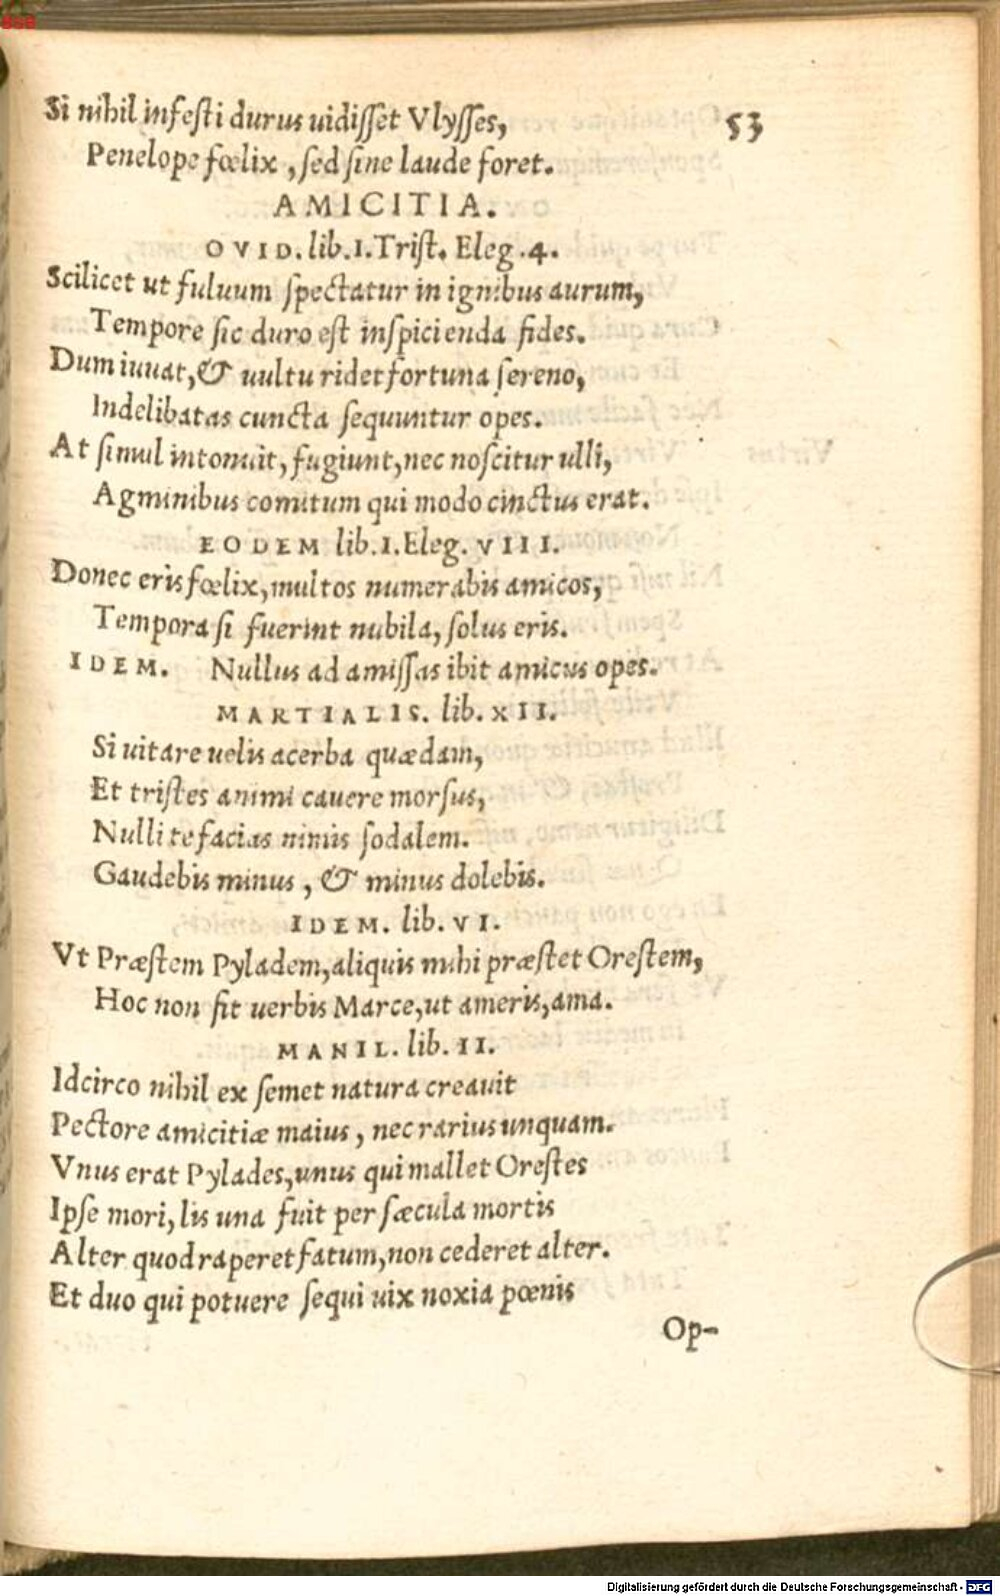 Si nihil infesti durus uidisset Vlysses,
53
Penelope fœlix, sed sine laude foret.
AMICITIA.
OVID. lib.1.Trist. Eleg.4.
Scilicet ut fuluum spectatur in ignibus aurum,
Tempore sic duro est inspicienda fides.
Dum iuuat, & uultu ridet fortuna sereno,
Indelibatas cuncta sequuntur opes.
At simul intonuit, fugiunt, nec noscitur ulli,
Agminibus comitum qui modo cinctus erat.
EODEM lib.1.Eleg. VIII.
Donec eris fœlix, multos numerabis amicos,
Tempora si fuerint nubila, solus eris.
IDEM. Nullus ad amissas ibit amicus opes.
MARTIALIS. lib. XII.
Si uitare uelis acerba quædam,
Et tristes animi cauere morsus,
Nulli te facias nimis sodalem.
Gaudebis minus, & minus dolebis.
IDEM. lib. VI.
Vt Præstem Pyladem, aliquis mihi præstet Orestem,
Hoc non fit uerbis Marce, ut ameris, ama.
MANIL. lib. II.
Idcirco nihil ex semet natura creauit
Pectore amicitiæ maius, nec rarius unquam.
Vnus erat Pylades, unus qui mallet Orestes
Ipse mori, lis una fuit per sæcula mortis
Alter quod raperet fatum, non cederet alter.
Et duo qui potuere sequi uix noxia pœnis
Op-
Digitalisierung gefördert durch die Deutsche Forschungsgemeinschaft - DFG